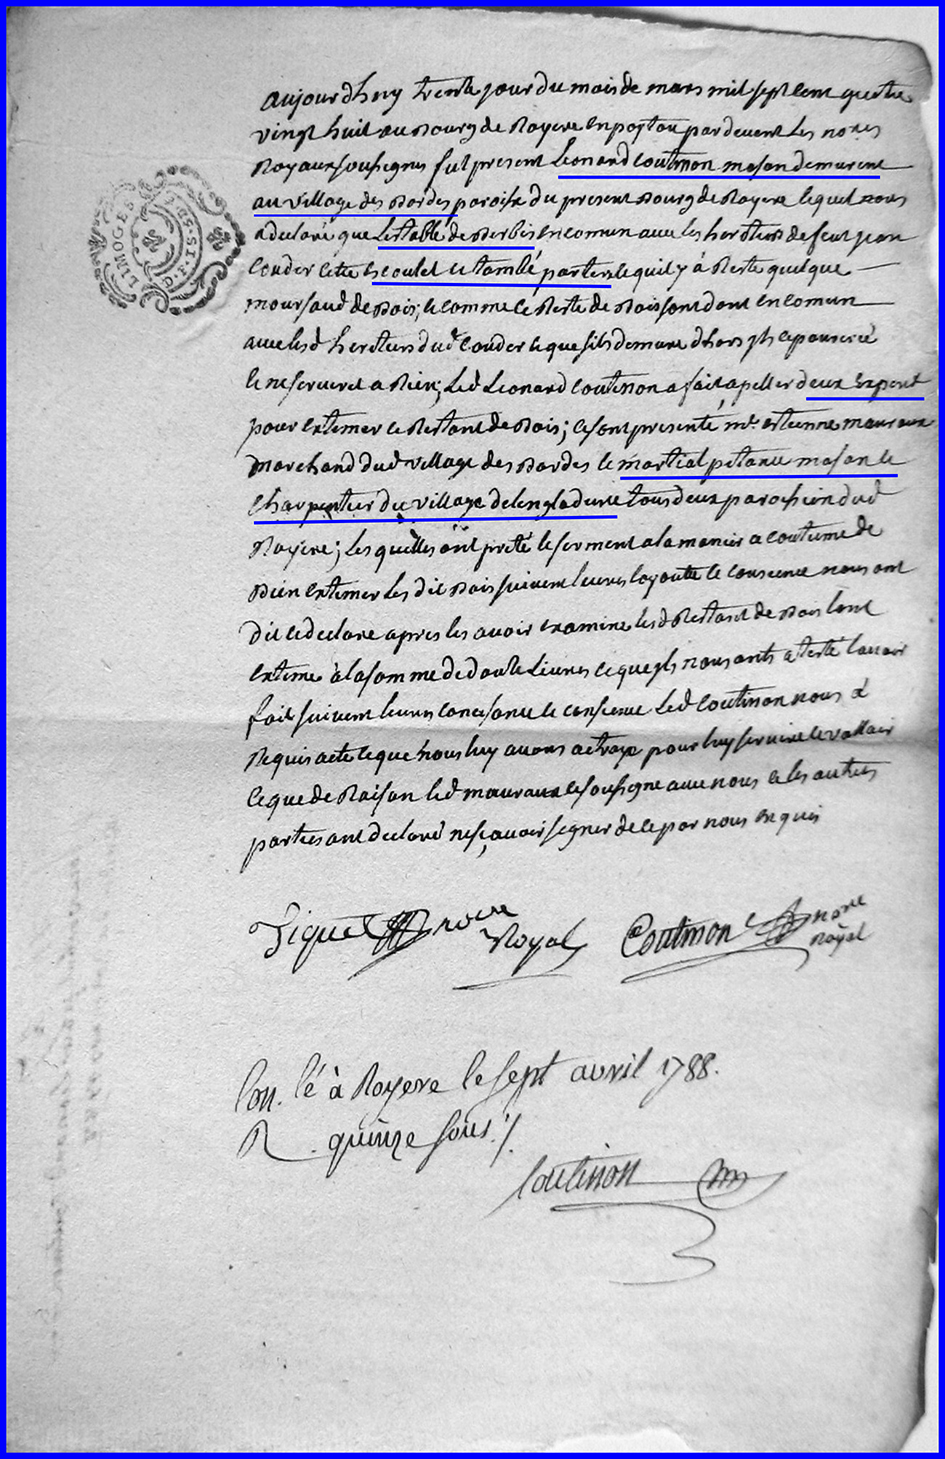 LIMOGES
aujourdhuy trente jour du mois de mars mil sept cent quattre
vingt huit au Bourg de Royere en poytou pardevent Les nores
Royaux sousignes fut present Leonard Coutinon mason demurent
au village des Bordes paroisse du present Bourg de Royere lequel nous
a declaré que Lestable de Berbis en comun avec les heretiers de feut jean
Couder cete ecoulet et tombé par terre le quil y à Reste quelque
moursaud de Bois; le comme ce Reste de Bois sont dont en comun
avec lesd heretiers dud Couder le que sils demure dhors
le ne serviret a Rien; Led Leonard Coutinon a fait apeller deux Expert
pour extimer ce Restant de Bois; ce sont presenté, mr. etienne mauraux
marchand dud village des Bordes le martial pitance mason le
Charpentier du village de lengladure tous deux parochien dud
Royere; Les quelles ont preté le serment a la manier acoutume de
Bien extimer Les dit Bois suivent leures le conscience nous ont
dit et declare apres les avoir examine lesd Restant de Bois lont
extime à la somme de douse Livres ce que nous onts atesté lavoir
fait suivent leures conesanse le consience Led Coutinon nous à
Requis acte le que nous luy avons actroye pour luy servire le valloir
ce que de Raison led mauraux ce sousigne avec nous et les autres
parties ont declaré ne scavoir segner de ce par nous enquis
nore
Royal Coutinon nore
Royal
Con. lé à Royere le sept avril 1788.
R. quinze sous ./.
Coutinon